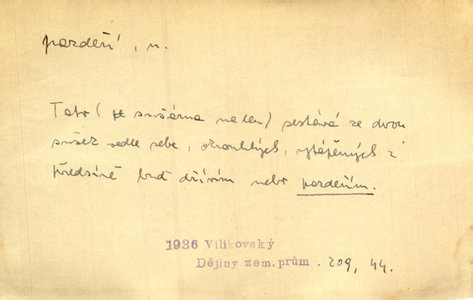 pazdeří, n.
Tato (je sušárna na len) sestává ze dvou
sušek vedle sebe, okrouhlých, vytápěných z
předsíně buď dřívím nebo pazdeřím.
1936 Vilikovský
Dějiny zem. prům. 209, 44.